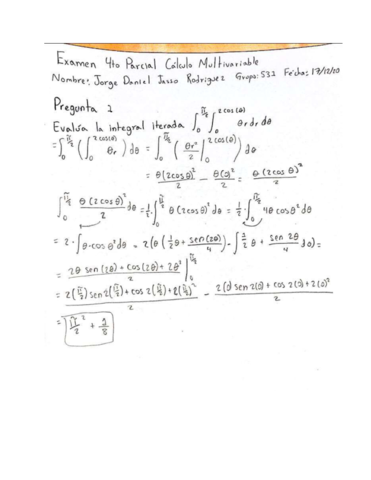 Examen 4to Parcial Cálculo Multivariable
Nombre: Jorge Daniel Jasso Rodriguez Grupo: 531 Fecha: 17/12/20
Pregunta 1
Evalúa la integral iterada ∫₀^(π/2) ∫₀^(2cos(θ)) θr dr dθ
= ∫₀^(π/2) (∫₀^(2cos(θ)) θr) dθ = ∫₀^(π/2) (θr²/2 |₀^(2cos(θ))) dθ
= θ(2cosθ)²/2 - θ(0)²/2 = θ(2cosθ)²/2
∫₀^(π/2) θ(2cosθ)²/2 dθ = 1/2 · ∫₀^(π/2) θ(2cosθ)² = 1/2 · ∫₀^(π/2) 4θcosθ² dθ
= 2 · ∫θ·cosθ² dθ = 2(θ(1/2 θ + sen(2θ)/4) - ∫1/2 θ + sen 2θ/4 dθ) =
= 2θ sen(2θ) + cos(2θ) + 2θ²/2 |₀^(π/2)
= 2(π/2) sen 2(π/2) + cos 2(π/2) + 2(π/2)²/2 - 2(0) sen 2(0) + cos 2(0) + 2(0)²/2